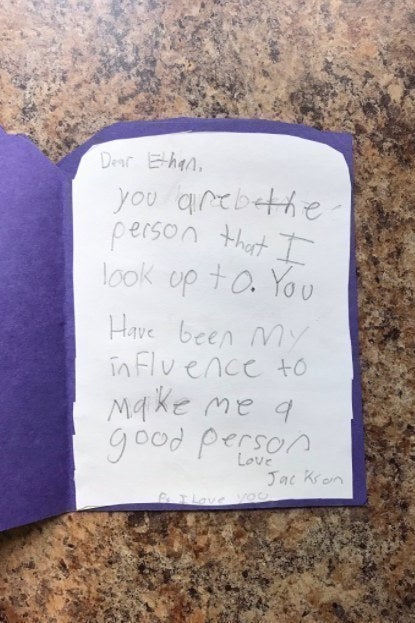 Dear Ethan,
you are the
person that I
look up to. You
Have been My
influence to
Make me a
good person
Love
Jackson
Ps I Love you